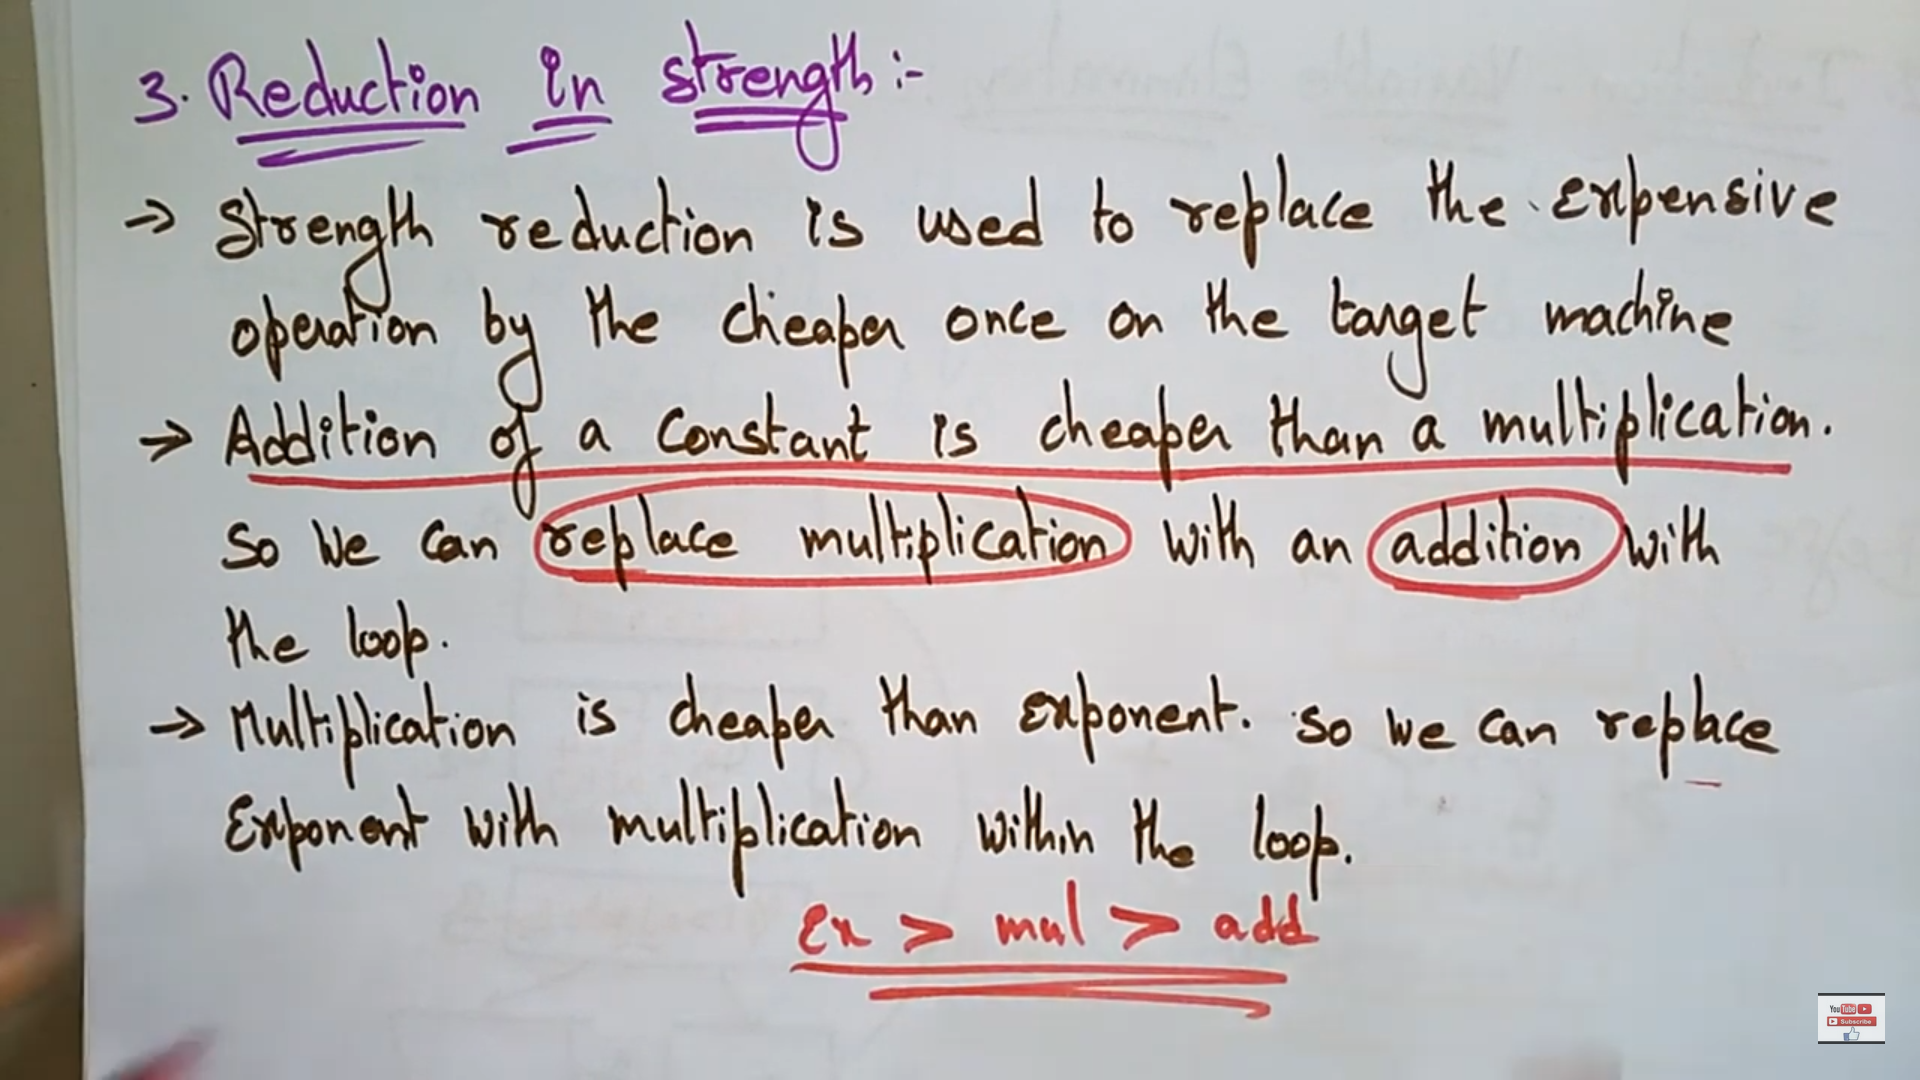 3. Reduction in strength :-
→ Strength reduction is used to replace the expensive
operation by the cheaper once on the target machine
→ Addition of a constant is cheaper than a multiplication.
So we can replace multiplication with an addition with
the loop.
→ Multiplication is cheaper than exponent. So we can replace
Exponent with multiplication within the loop.
Ex > mul > add
YouTube
Subscribe